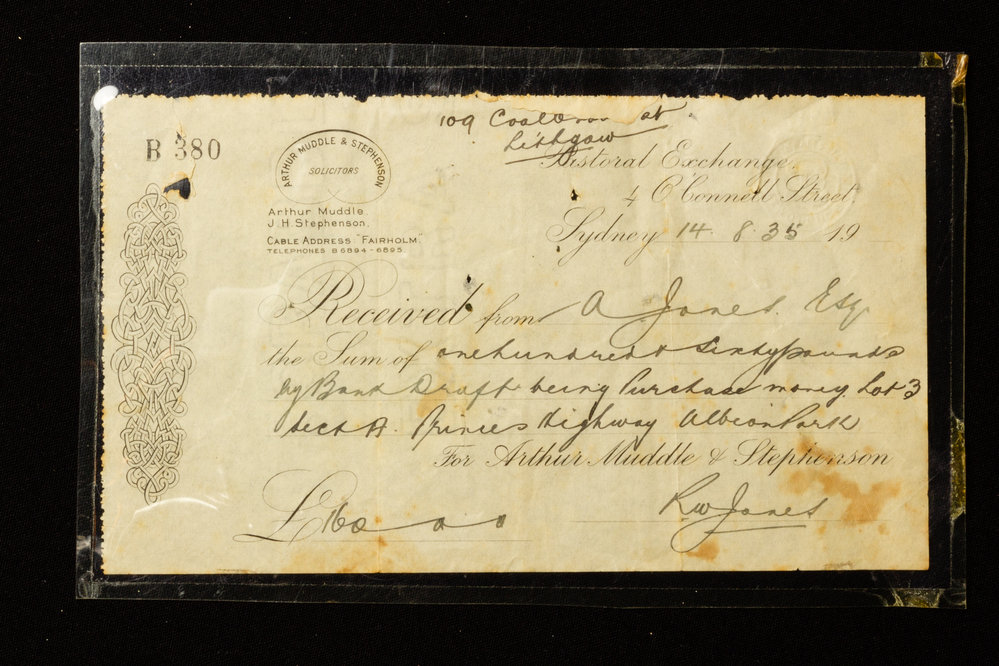 109 Coalbrook st
Lithgow
B 380
ARTHUR MUDDLE & STEPHENSON
SOLICITORS
Arthur Muddle.
J. H. Stephenson.
CABLE ADDRESS "FAIRHOLM."
TELEPHONES B 6894 - 6895.
Pastoral Exchange,
4 O'Connell Street,
Sydney 14 . 8. 35 19
Received from A Jones. Esq
the Sum of one hundred & sixty pounds
by Bank Draft being Purchase money Lot 3
Sect A. Princes Highway Albion Park
For Arthur Muddle & Stephenson
£160 " 0 " 0
RW Jones